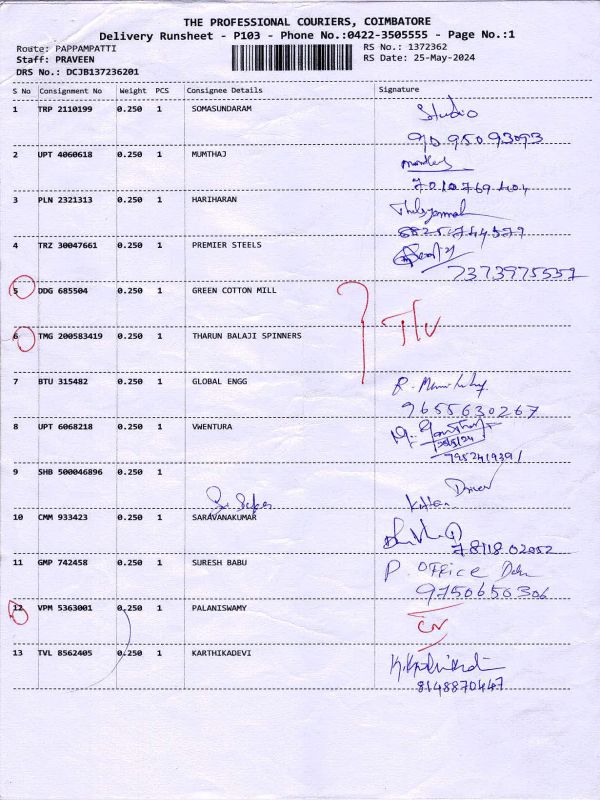 THE PROFESSIONAL COURIERS, COIMBATORE
Delivery Runsheet - P103 - Phone No.:0422-3505555 - Page No.:1
Route: PAPPAMPATTI RS No.: 1372362
Staff: PRAVEEN RS Date: 25-May-2024
DRS No.: DCJB137236201
S No Consignment No Weight PCS Consignee Details Signature
1 TRP 2110199 0.250 1 SOMASUNDARAM Studio
90 95093093
2 UPT 4060618 0.250 1 MUMTHAJ
7010769404
3 PLN 2321313 0.250 1 HARIHARAN
4 TRZ 30047661 0.250 1 PREMIER STEELS
7373975557
5 DDG 685504 0.250 1 GREEN COTTON MILL
6 TMG 200583419 0.250 1 THARUN BALAJI SPINNERS
7 BTU 315482 0.250 1 GLOBAL ENGG
9655630267
8 UPT 6068218 0.250 1 VWENTURA
9 SHB 500046896 0.250 1
10 CMM 933423 0.250 1 SARAVANAKUMAR
78118 02052
11 GMP 742458 0.250 1 SURESH BABU P. OFFICE
9750650306
12 VPM 5363001 0.250 1 PALANISWAMY
13 TVL 8562405 0.250 1 KARTHIKADEVI
8148870447